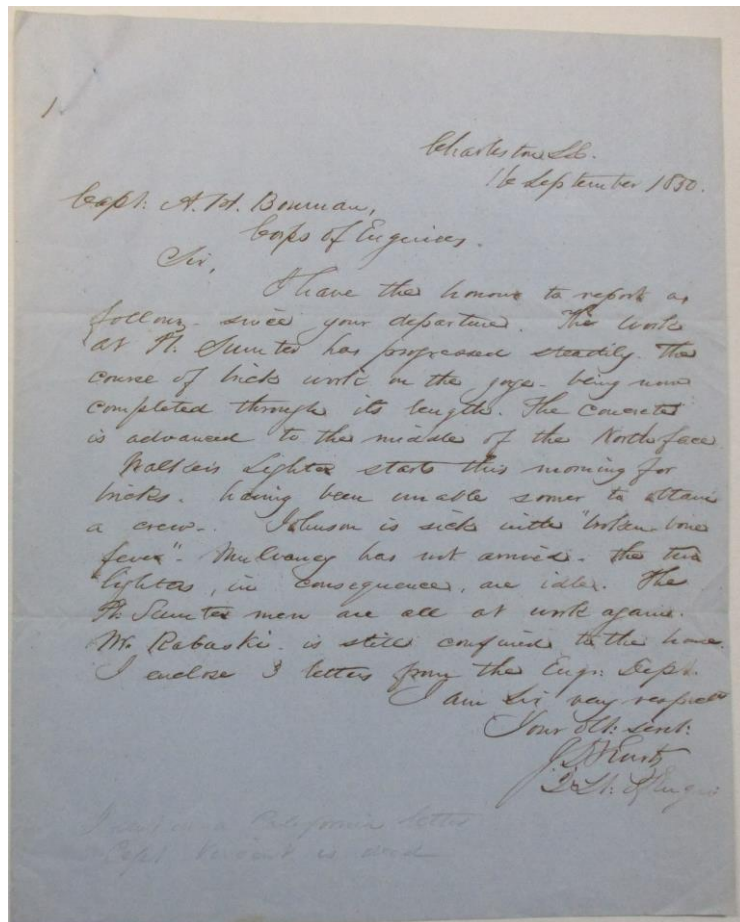 1.
Charleston S.C.
16 September 1850.
Capt. A. H. Bowman,
Corps of Engineers.
Sir,
I have the honour to report as
follows since your departure. The work
at Ft. Sumter has progressed steadily. The
course of brick work on the gorge being now
completed through its length. The concrete
is advanced to the middle of the North face.
Walker's Lighter starts this morning for
bricks. having been unable sooner to obtain
a crew. Johnson is sick with "broken bone
fever". Mulvaney has not arrived. the two
lighters, in consequence, are idle. The
Ft. Sumter men are all at work again.
Mr. Rabaski. is still confined to the house.
I enclose 3 letters from the Engr: Dept.
I am Sir very respect
Your Obt: servt:
J. D. Kurtz
Lt: Engrs
a California letter
Capt is dead